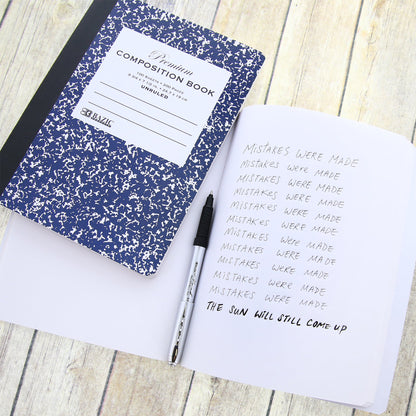 Premium
COMPOSITION BOOK
UNRULED
BAZIC
MISTAKES WERE MADE
MISTAKES WERE MADE
MISTAKES WERE MADE
MISTAKES WERE MADE
MISTAKES WERE MADE
MISTAKES WERE MADE
MISTAKES WERE MADE
MISTAKES WERE MADE
MISTAKES WERE MADE
MISTAKES WERE MADE
MISTAKES WERE MADE
THE SUN WILL STILL COME UP